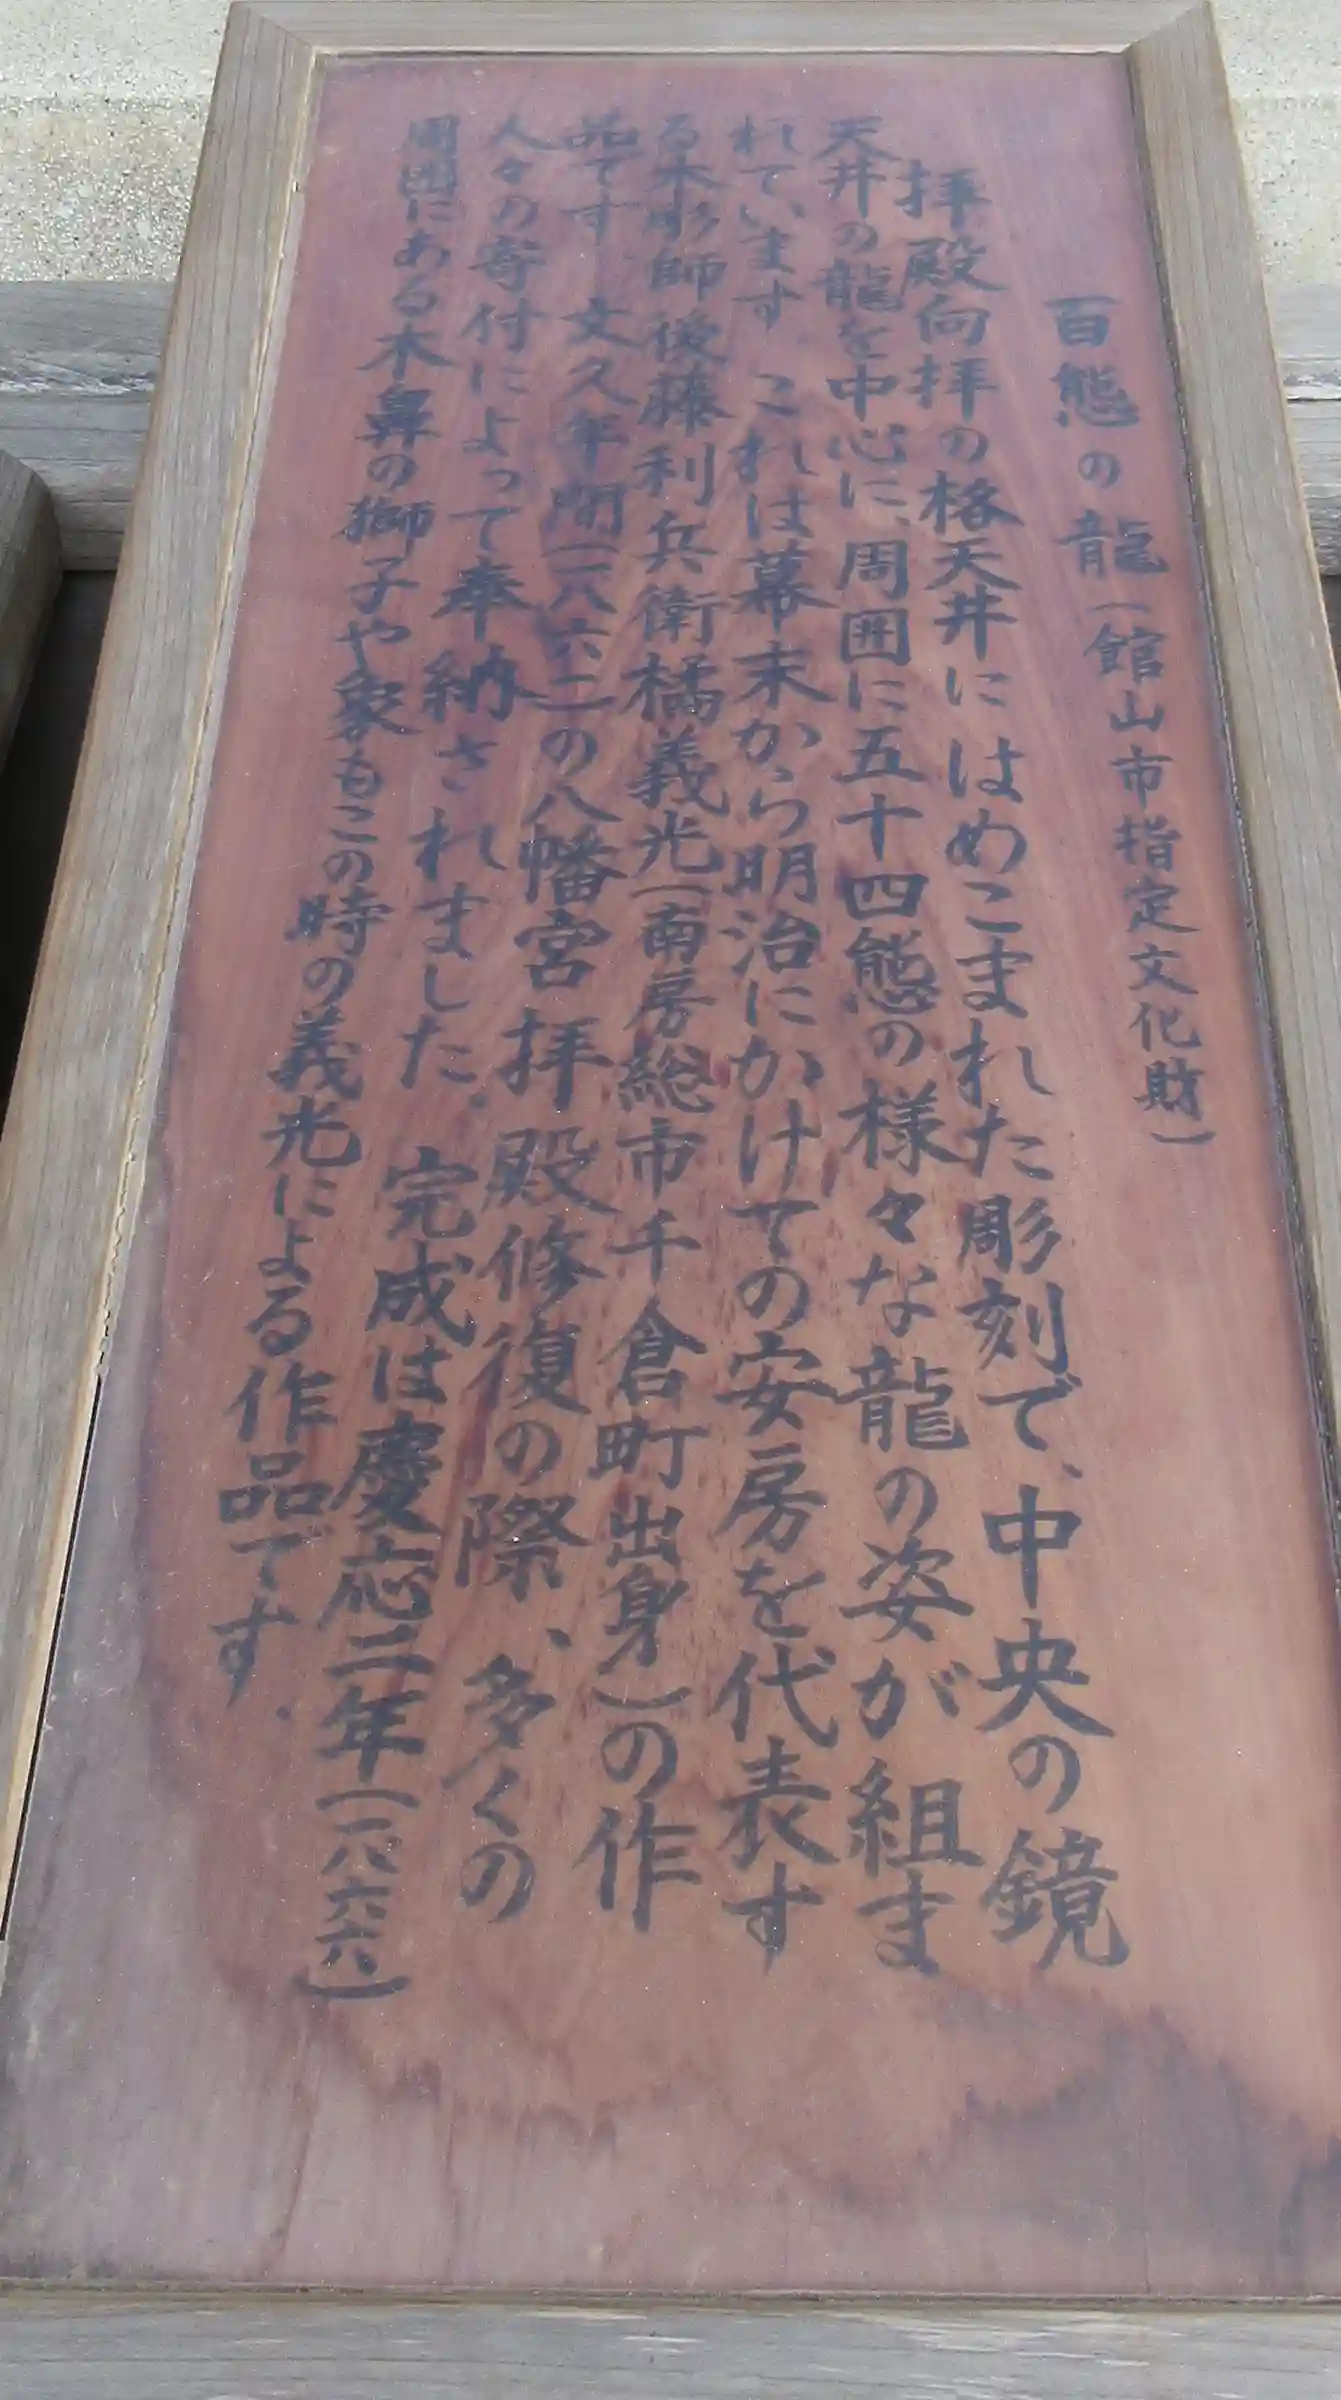 百態の龍(館山市指定文化財)
拝殿向拝の格天井にはめこまれた彫刻で、中央の鏡
天井の龍を中心に、周囲に五十四態の様々な龍の姿が組ま
れています。これは幕末から明治にかけての安房を代表す
る木彫師 後藤利兵衛橘義光(南房総市千倉町出身)の作
品です 文久年間(一八六二)の八幡宮拝殿修復の際、多くの
人々の寄付によって奉納されました。完成は慶応二年(一八六六)
周囲にある木鼻の獅子や象もこの時の義光による作品です。